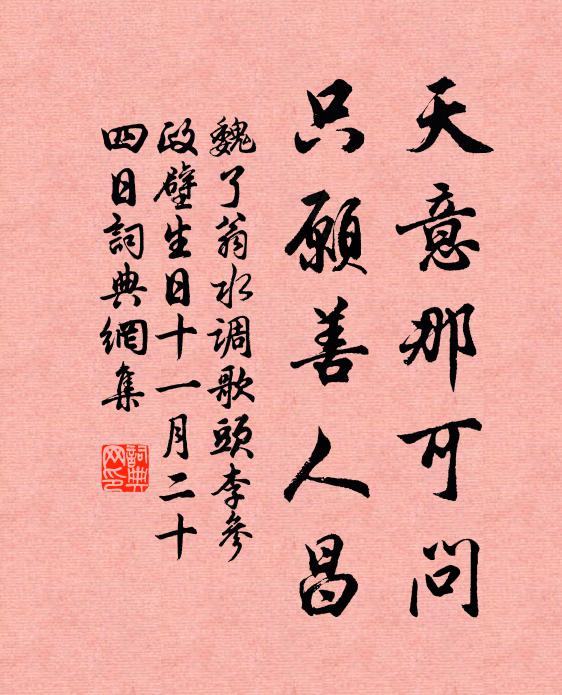 天意那可问
只愿善人昌
魏了翁水调歌头李参
政壁生日十一月二十
四日词典网集
词典网印